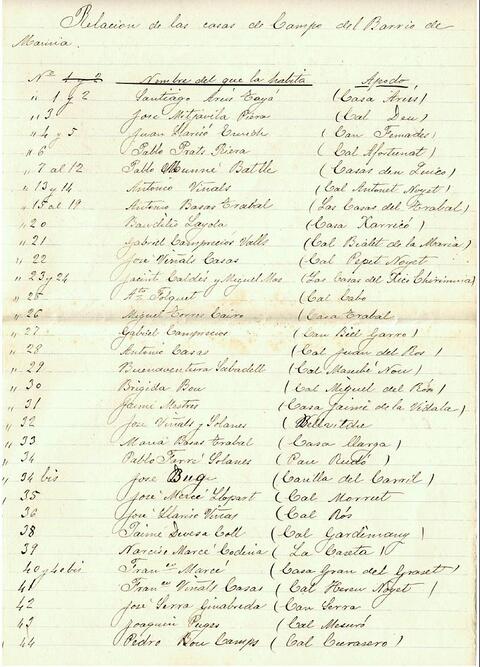 Relacion de las casas de Campo del Barrio de
Marina.
Nº 1 y 2 Nombre del que la habita Apodo
" 1 y 2 Santiago Ariés Tayá (Casa Ariés)
" 3 José Mitjavila Riera (Cal Deu)
" 4 y 5 Juan Llarisó (Can Femades)
" 6 Pablo Prats Riera (Cal Afortunat)
" 7 al 12 Pablo Munné Batlle (Casas den Quico)
" 13 y 14 Antonio Viñals (Cal Antonet Noyet)
" 15 al 19 Antonio Basas Trabal (Las Casas del Trabal)
" 20 Baudilio Layola (Casa Xarricó)
" 21 Gabriel Campreciós Valls (Cal Bialet de la Maria)
" 22 José Viñals Casas (Cal Pepet Noyet)
" 23 y 24 Jacinto Caldés y Miguel Mas (Las Casas del Xeco Chirimina)
" 25 Folquet (Cal Cabo)
" 26 Miguel Torres Cairó (Casa Trabal)
" 27 Gabriel Campreciós (Can Biel Garro)
" 28 Antonio Casas (Cal Juan del Ros)
" 29 Buenaventura Sabadell (Cal Maschè Nou)
" 30 Brigida Bou (Cal Miguel del Rós)
" 31 Jaime Mestres (Casa Jaime de la Vidala)
" 32 José Viñals y Solanes (Bellvitche)
" 33 Maria Basas Trabal (Casa Llarga)
" 34 Pablo Farré Solanes (Pau Rudó)
" 34 bis José (Caulla del Carril)
" 35 José Mercé Llopart (Cal Morret)
" 36 José Llarisó Viñas (Cal Rós)
" 38 Jaime Devesa Coll (Cal Gardeñany)
" 39 Narciso Marcé Codina (La Caseta)
" 40 y 40 bis Franco Marcé (Casa Gran del Graset)
" 41 Franco Viñals Casas (Cal Hereu Noyet)
" 42 José Serra Ginabreda (Can Serra)
" 43 Joaquin Puges (Cal Mesuró)
" 44 Pedro Bou Camps (Cal Curasero)